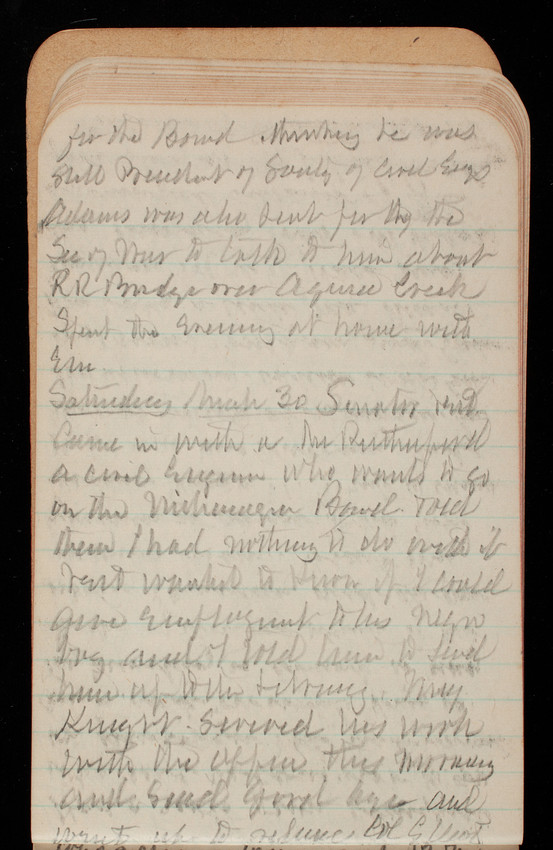 for the Board. Thinking he was
still President of Society of Civil Engs
Adams was also sent for by the
Sec of War to talk to him about
R R Bridge over Aquia Creek
Spent the Evening at home with
Em
Saturday March 30 Senator
came in with a Mr Rutherford
a civil Engineer who wants to go
on the Nicheragua Board. Told
them I had nothing to do with it
wanted to know if I could
give employment to his negro
boy and I told him to send
him up to the Library. Mr
Knight. Severed his work
with the office this morning
and said Good bye and
went up to Col Elliot